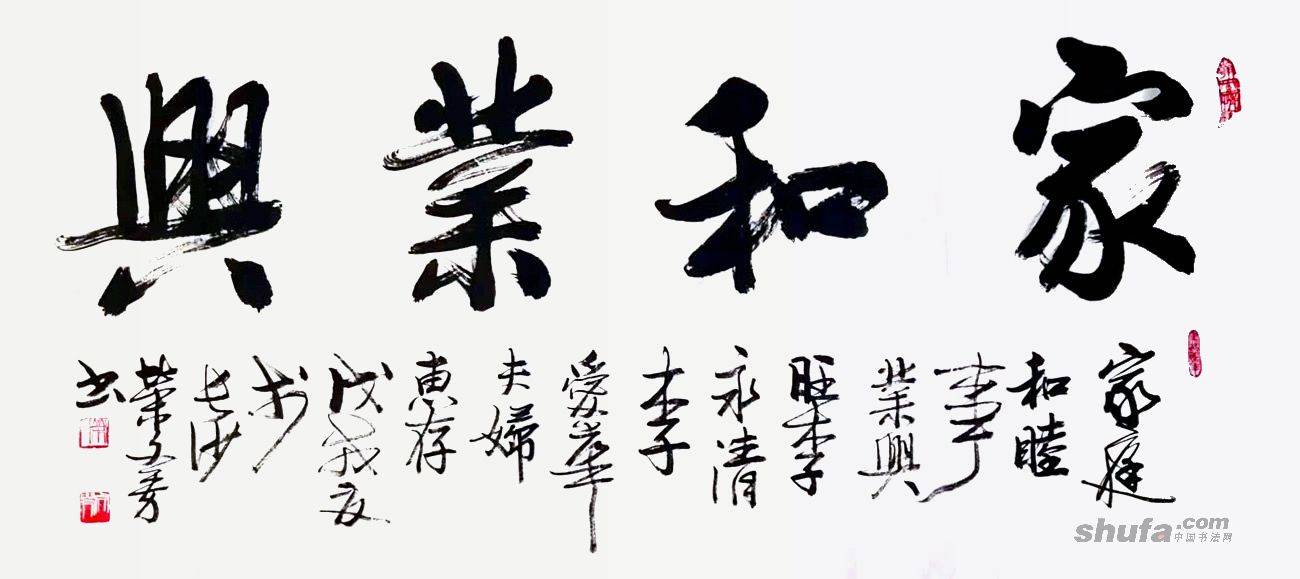 家和業興
家庭
和睦
事
業興
旺李
永清
李
愛華
夫婦
惠存
戊戌夏
於
長沙
榮文芳
书
shufa.com
中国书法网